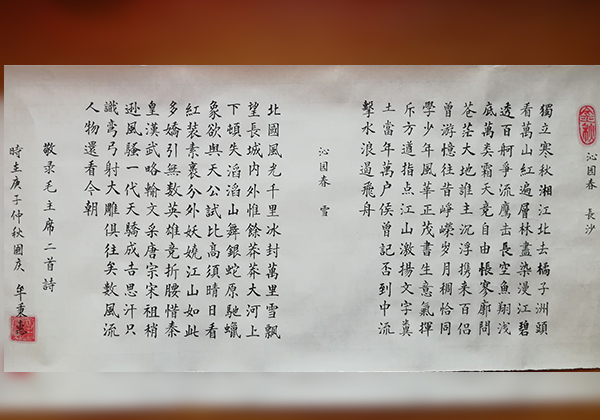 沁园春 長沙
獨立寒秋湘江北去橘子洲頭
看萬山紅遍層林盡染漫江碧
透百舸爭流鷹击長空魚翔浅
底萬类霜天竞自由悵寥廓問
苍茫大地誰主沉浮携来百侣
曾游憶往昔峥嵘岁月稠恰同
學少年風華正茂書生意氣揮
斥方遒指点江山激揚文字糞
土當年萬户侯曾記否到中流
擊水浪遏飛舟
沁园春 雪
北國風光千里冰封萬里雪飄
望長城内外惟餘莽莽大河上
下頓失滔滔山舞銀蛇原馳蠟
象欲與天公試比高須晴日看
紅装素裹分外妖娆江山如此
多嬌引無數英雄竞折腰惜秦
皇漢武略輸文采唐宗宋祖稍
逊風骚一代天驕成吉思汗只
識彎弓射大雕俱往矣數風流
人物還看今朝
敬录毛主席二首詩
時在庚子仲秋國庆 牟秉